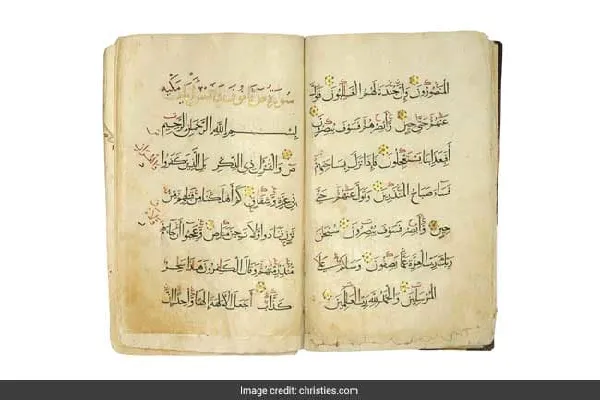 المنصورون وان جندنا لهم الغالبون فتول
عنهم حتى حين وأبصرهم فسوف يبصرون
أفبعذابنا يستعجلون فاذا نزل بساحتهم
فساء صباح المنذرين وتول عنهم حتى
حين وأبصر فسوف يبصرون سبحان
ربك رب العزة عما يصفون وسلام على
المرسلين والحمد لله رب العالمين
سورة ص مكية
بسم الله الرحمن الرحيم
ص والقران ذي الذكر بل الذين كفروا
في عزة وشقاق كم أهلكنا من قبلهم من
قرن فنادوا ولات حين مناص وعجبوا أن جاءهم
منذر منهم وقال الكافرون هذا ساحر
كذاب أجعل الالهة الها واحدا ان
Image credit: christies.com